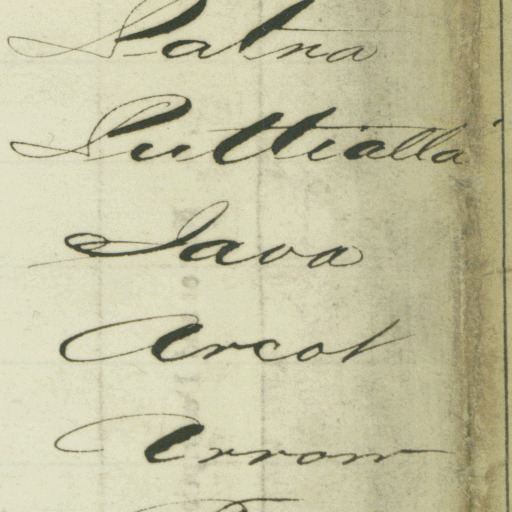 Patna
Puttialla
Java
Arcot
Arrow